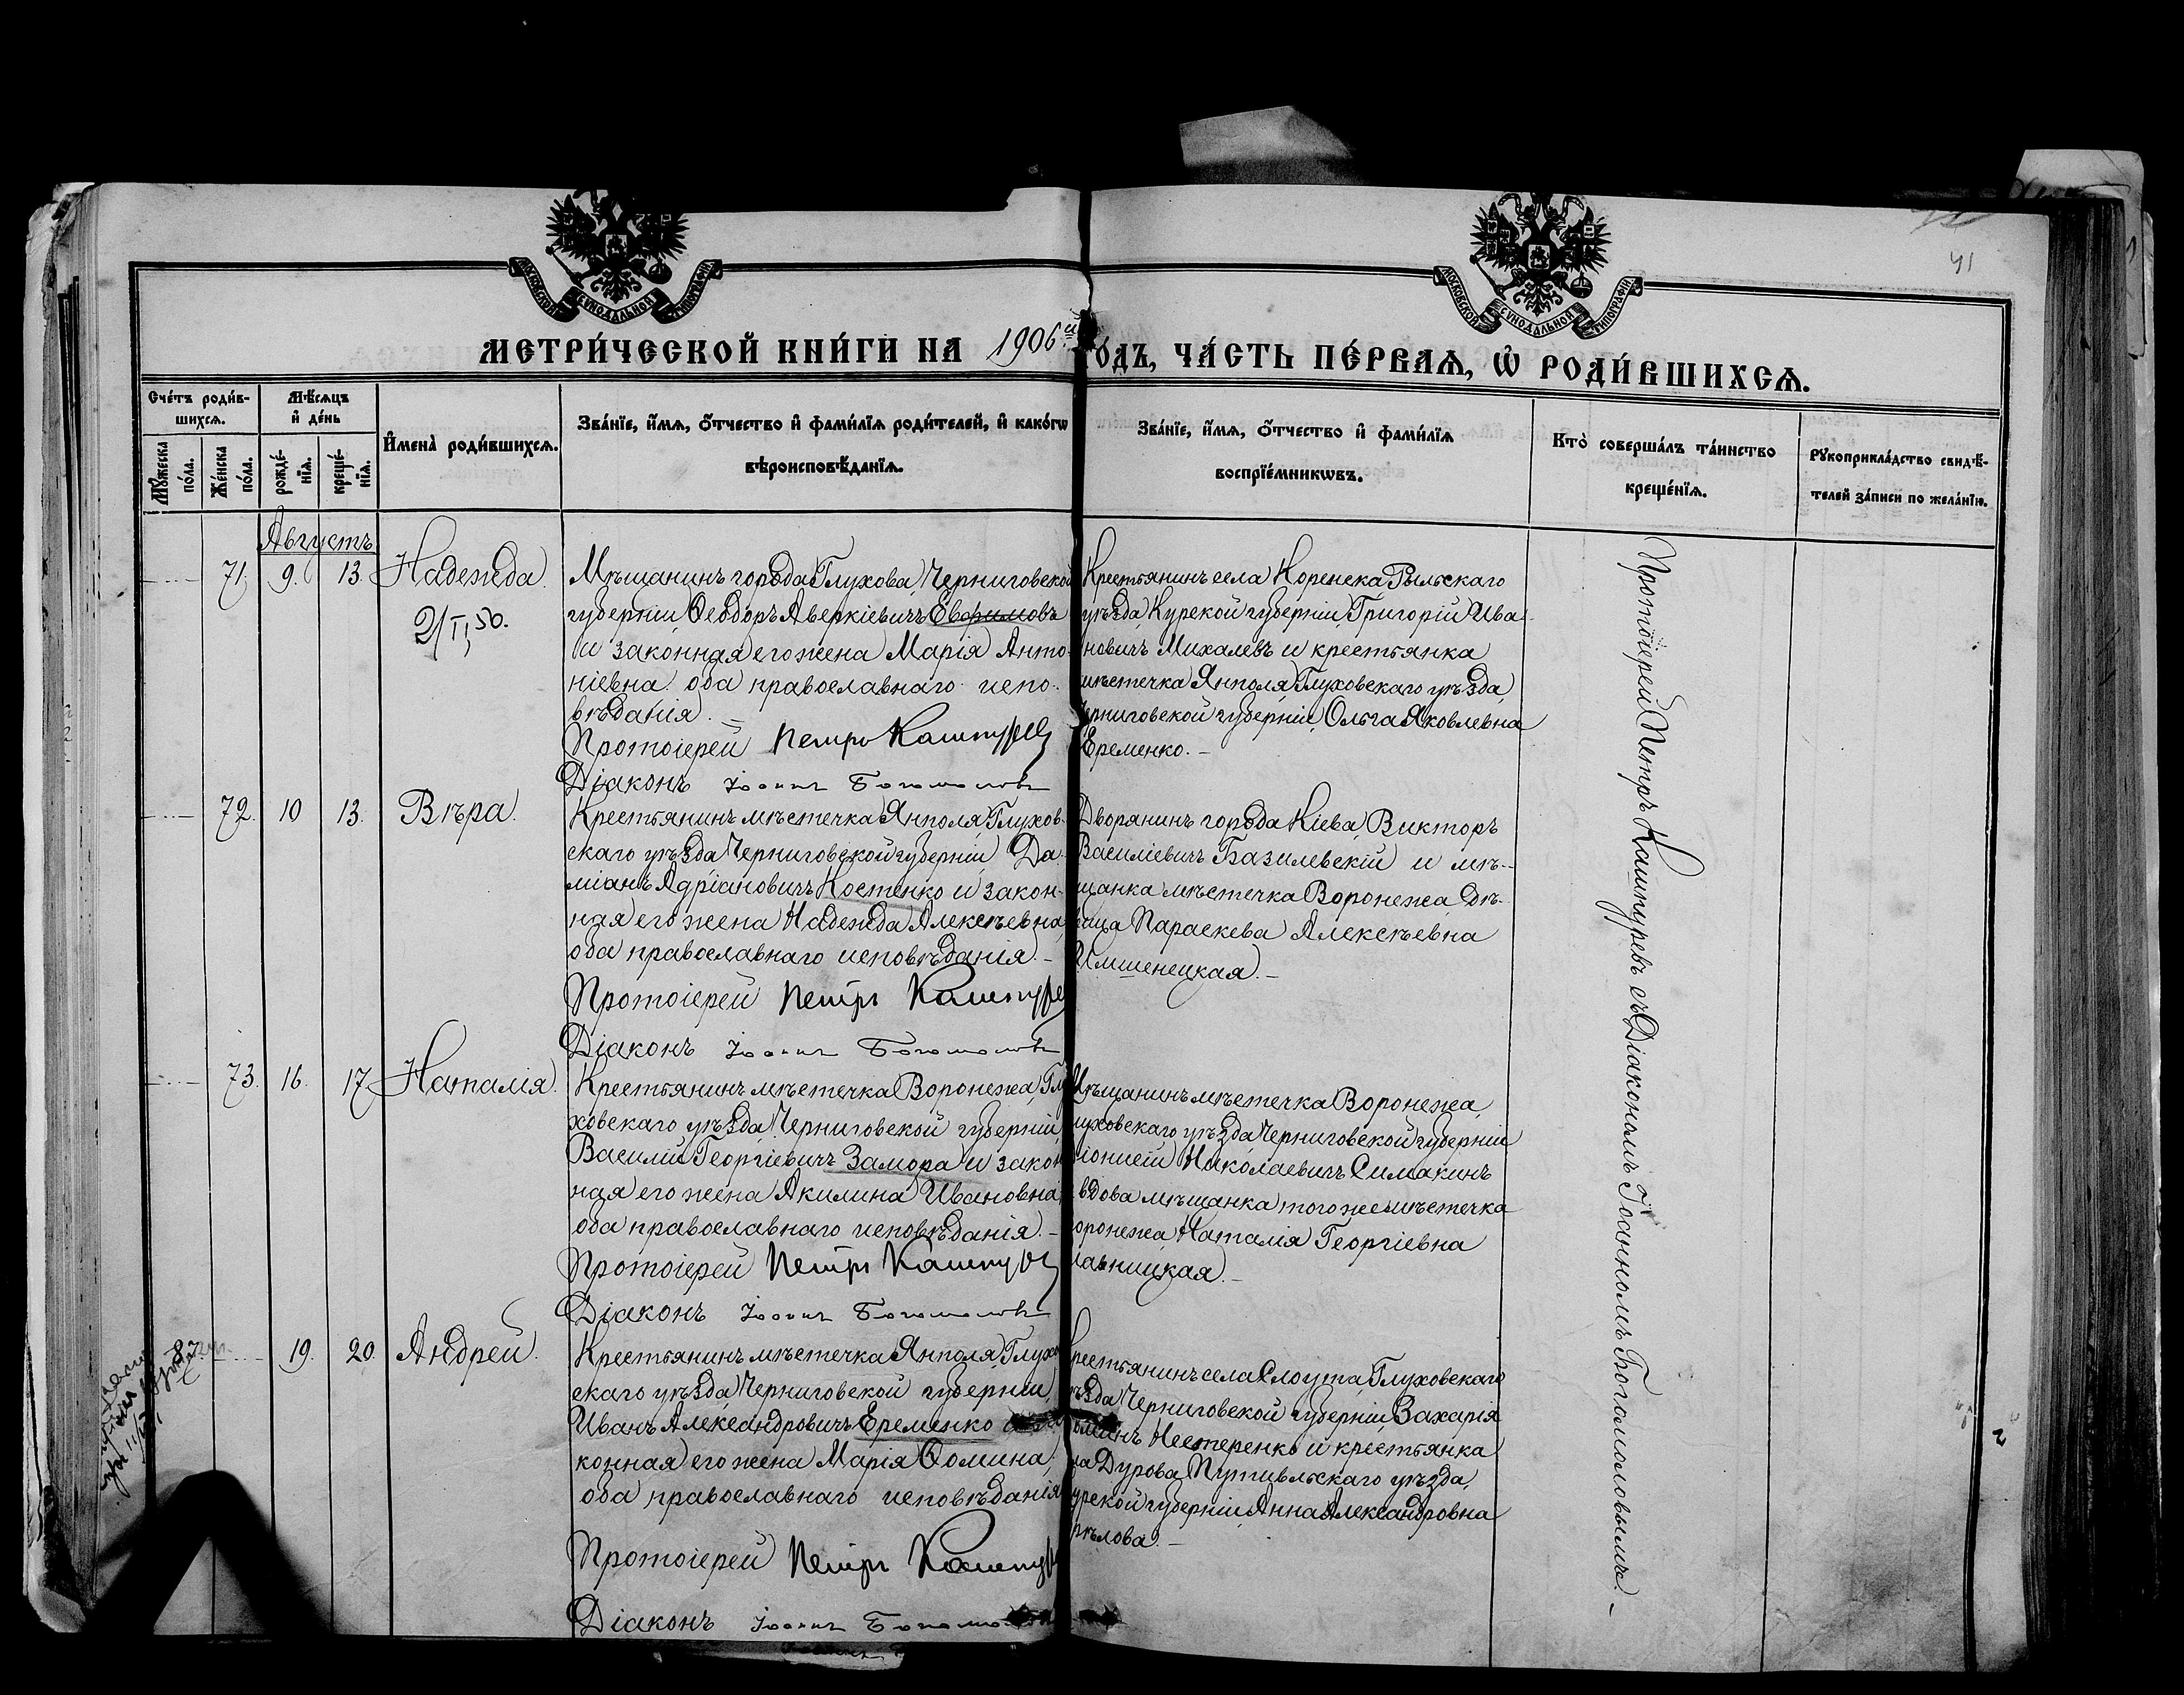 МОСКОВСКОЙ СѴНОДАЛЬНОЙ ТИПОГРАФІИ
МОСКОВСКОЙ СѴНОДАЛЬНОЙ ТИПОГРАФІИ
41
МЕТРИ́ЧЕСКОЙ КНИ́ГИ НА 1906й ГО́ДЪ, ЧА́СТЬ ПЕ́РВАѦ, Ѽ РОДИ́ВШИХСѦ.
Сче́тъ роди́в-
шихсѧ.
Мꙋ́жеска
по́ла.
Же́нска
по́ла.
Мѣ́сѧцъ
и҆ де́нь
рожде́-
нїѧ.
креще́-
нїѧ.
И҆мена̀ роди́вшихсѧ.
Зва́нїе, и҆́мѧ, ѻ҆́тчество и҆ фами́лїѧ роди́телей, и҆ како́гѡ
вѣроисповѣ́данїѧ.
Зва́нїе, и҆́мѧ, ѻ҆́тчество и҆ фами́лїѧ
воспрїе́мникѡвъ.
Кто̀ соверша́лъ та́инство
креще́нїѧ.
Рꙋкоприкла́дство свидѣ́-
телей за́писи по жела́нїю.
Августъ
71. 9. 13. Надежда.
2/II, 50.
Мѣщанинъ города Глухова, Черниговской
губерніи, Ѳеодоръ Аверкіевичъ Евфимовъ
и законная его жена Марія Анто-
ніевна оба православнаго испо-
вѣданія.
Протоіерей Петръ Кашпуревъ
Діаконъ Іоаннъ Богомоловъ
Крестьянинъ села Коренека, Рыльскаго
уѣзда, Курской губерніи, Григорій Ива-
новичъ Михалевъ и крестьянка
мѣстечка Янполя, Глуховскаго уѣзда,
Черниговской губерніи, Ольга Яковлевна
Еременко.
72. 10 13. Вѣра.
Крестьянинъ мѣстечка Янполя, Глухов-
скаго уѣзда, Черниговской губерніи, Да-
міанъ Адріановичъ Костенко и закон-
ная его жена Надежда Алексѣевна,
оба православнаго исповѣданія.
Протоіерей Петръ Кашпуре
Діаконъ Іоаннъ Богомоловъ
Дворянинъ города Кіева, Викторъ
Василіевичъ Базилевскій и мѣ-
щанка мѣстечка Воронежа, дѣ-
вица Параскева Алексѣевна
Имшенецкая.
73. 16. 17. Наталія.
Крестьянинъ мѣстечка Воронежа, Глу
ховскаго уѣзда, Черниговской губерніи,
Василій Георгіевичъ Замора и закон
ная его жена Акилина Ивановна,
оба православнаго исповѣданія.
Протоіерей Петръ Кашпуре
Діаконъ Іоаннъ Богомоловъ
Мѣщанинъ мѣстечка Воронежа,
луховскаго уѣзда, Черниговской губерніи
іонисій Николаевичъ Симакинъ
вдова мѣщанка того же мѣстечка
оронежа, Наталія Георгіевна
лавницкая.
87. 19. 20. Андрей.
Крестьянинъ мѣстечка Янполя, Глухо
скаго уѣзда, Черниговской губерніи,
Иванъ Александровичъ Еременко
конная его жена Марія Ѳомина,
оба православнаго исповѣданія
Протоіерей Петръ Кашпур
Діаконъ Іоаннъ Богомолов
рестьянинъ села Слоута, Глуховскаго
ѣзда, Черниговской губерніи, Захарія
Нестеренко и крестьянка
ла Дурова, Путивльскаго уѣзда,
урской губерніи, Анна Александровна
рѣлова.
Протоіерей Петръ Кашпуревъ съ Діакономъ Іоанномъ Богомоловымъ.